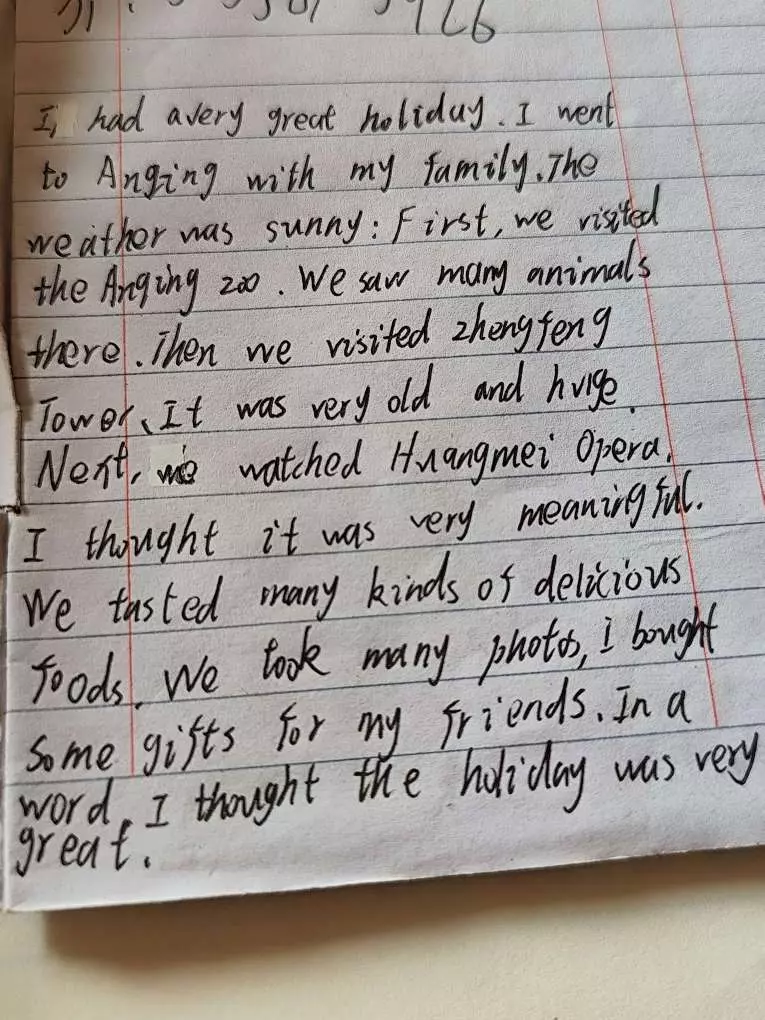 I, had a very great holiday. I went
to Anqing with my family. The
weather was sunny: First, we visited
the Anqing zoo. We saw many animals
there. Then we visited zhengfeng
Tower, It was very old and huge.
Next, we watched Huangmei Opera.
I thought it was very meaningful.
We tasted many kinds of delicious
foods. We took many photos, I bought
some gifts for my friends. In a
word, I thought the holiday was very
great.